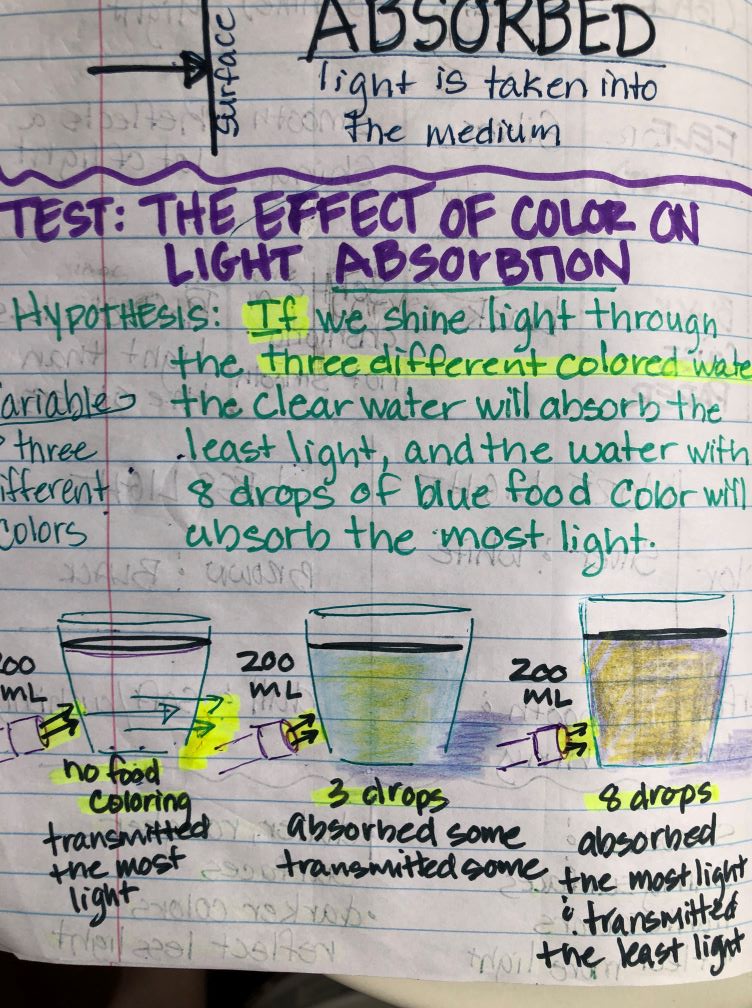 Surface
ABSORBED
light is taken into
the medium
TEST: THE EFFECT OF COLOR ON
LIGHT ABSORBTION
HYPOTHESIS: If we shine light through
the three different colored wate
the clear water will absorb the
least light, and the water with
8 drops of blue food color will
absorb the most light.
ariables
three
ifferent
colors
00
mL
no food
coloring
transmitted
the most
light
200
mL
3 drops
absorbed some
transmitted some
200
mL
8 drops
absorbed
the most light
& transmitted
the least light